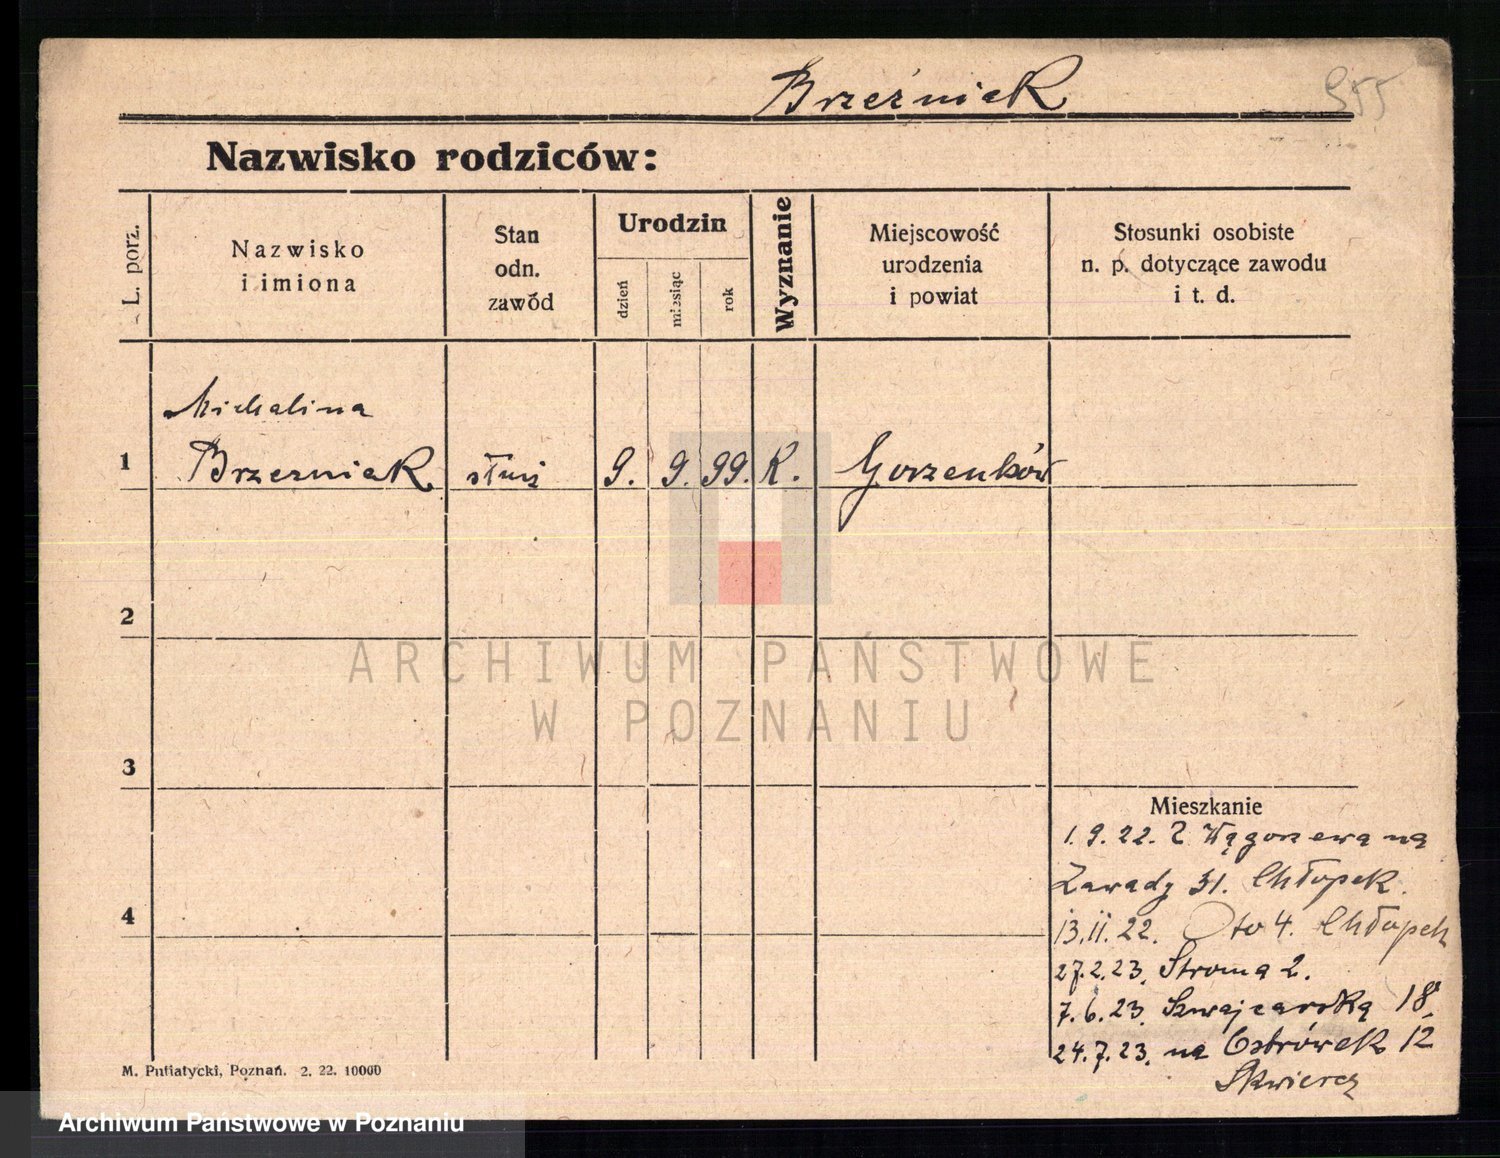 Brzeźniak
955
Nazwisko rodziców:
L. porz.
Nazwisko
i imiona
Stan
odn.
zawód
Urodzin
dzień
miesiąc
rok
Wyznanie
Miejscowość
urodzenia
i powiat
Stosunki osobiste
n. p. dotyczące zawodu
i t. d.
Michalina
1 Brzezniak służ 9. 9. 99. K. Gorzenków
2
ARCHIWUM PAŃSTWOWE
W POZNANIU
3
Mieszkanie
1.9.22. Z Wągorzewa na
Zawady 31. Chłopek.
4
13.11.22. Oto 4. Chłopek
27.2.23. Stroma 2.
7.6.23. Szwajcarską 18,
24.7.23. na Ostrówek 12
M. Putiatycki, Poznań. 2. 22. 10000
Archiwum Państwowe w Poznaniu